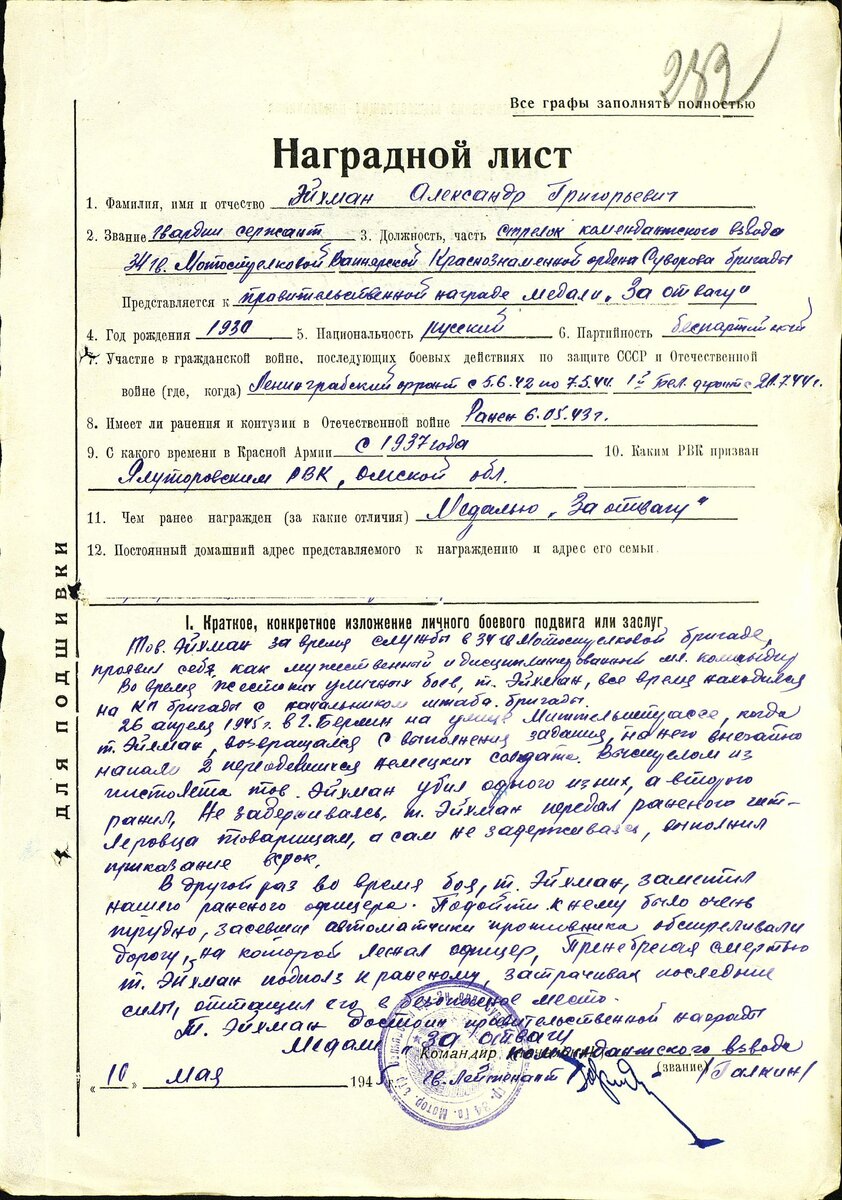 289
Все графы заполнять полностью
Наградной лист
1. Фамилия, имя и отчество Эйхман Александр Григорьевич
2. Звание гвардии сержант 3. Должность, часть стрелок комендантского взвода
34 гв. Мотострелковой Вапнярской Краснознаменной ордена Суворова бригады
Представляется к правительственной награде медали „За отвагу"
4. Год рождения 1930 5. Национальность русский 6. Партийность беспартийный
7. Участие в гражданской войне, последующих боевых действиях по защите СССР и Отечественной
войне (где, когда) Ленинградский фронт с 5.6.42 по 7.5.44. 1й Бел. фронт с 20.7.44 г.
8. Имеет ли ранения и контузии в Отечественной войне Ранен 6.05.43 г.
9. С какого времени в Красной Армии с 1937 года 10. Каким РВК призван
Ялуторовским РВК, Омской обл.
11. Чем ранее награжден (за какие отличия) Медалью „За отвагу"
12. Постоянный домашний адрес представляемого к награждению и адрес его семьи.
ДЛЯ ПОДШИВКИ
I. Краткое, конкретное изложение личного боевого подвига или заслуг
Тов. Эйхман за время службы в 34 гв Мотострелковой бригаде,
проявил себя, как мужественный и дисциплинированный мл. командир
Во время жестоких уличных боев, т. Эйхман, все время находился
на КП бригады с начальником штаба бригады.
26 апреля 1945 г. в г. Берлин на улице Миттельштрассе, когда
т. Эйхман, возвращался с выполнения задания, на него внезапно
напали 2 переодевшихся немецких солдата. Выстрелом из
пистолета тов. Эйхман убил одного из них, а второго
ранил, Не задерживаясь, т. Эйхман передал раненого гит-
леровца товарищам, а сам не задерживаясь, выполнил
приказание в срок.
В другой раз во время боя, т. Эйхман, заметил
нашего раненого офицера. Подойти к нему было очень
трудно, засевшие автоматчики противника обстреливали
дорогу, на которой лежал офицер, Пренебрегая смертью
т. Эйхман подполз к раненому, затрачивая последние
силы, оттащил его в безопасное место.
Т. Эйхман достоин правительственной награды
Медали „За отвагу
Командир комендантского взвода
„10" мая 1945 гв. Лейтенант (звание) /Галкин/